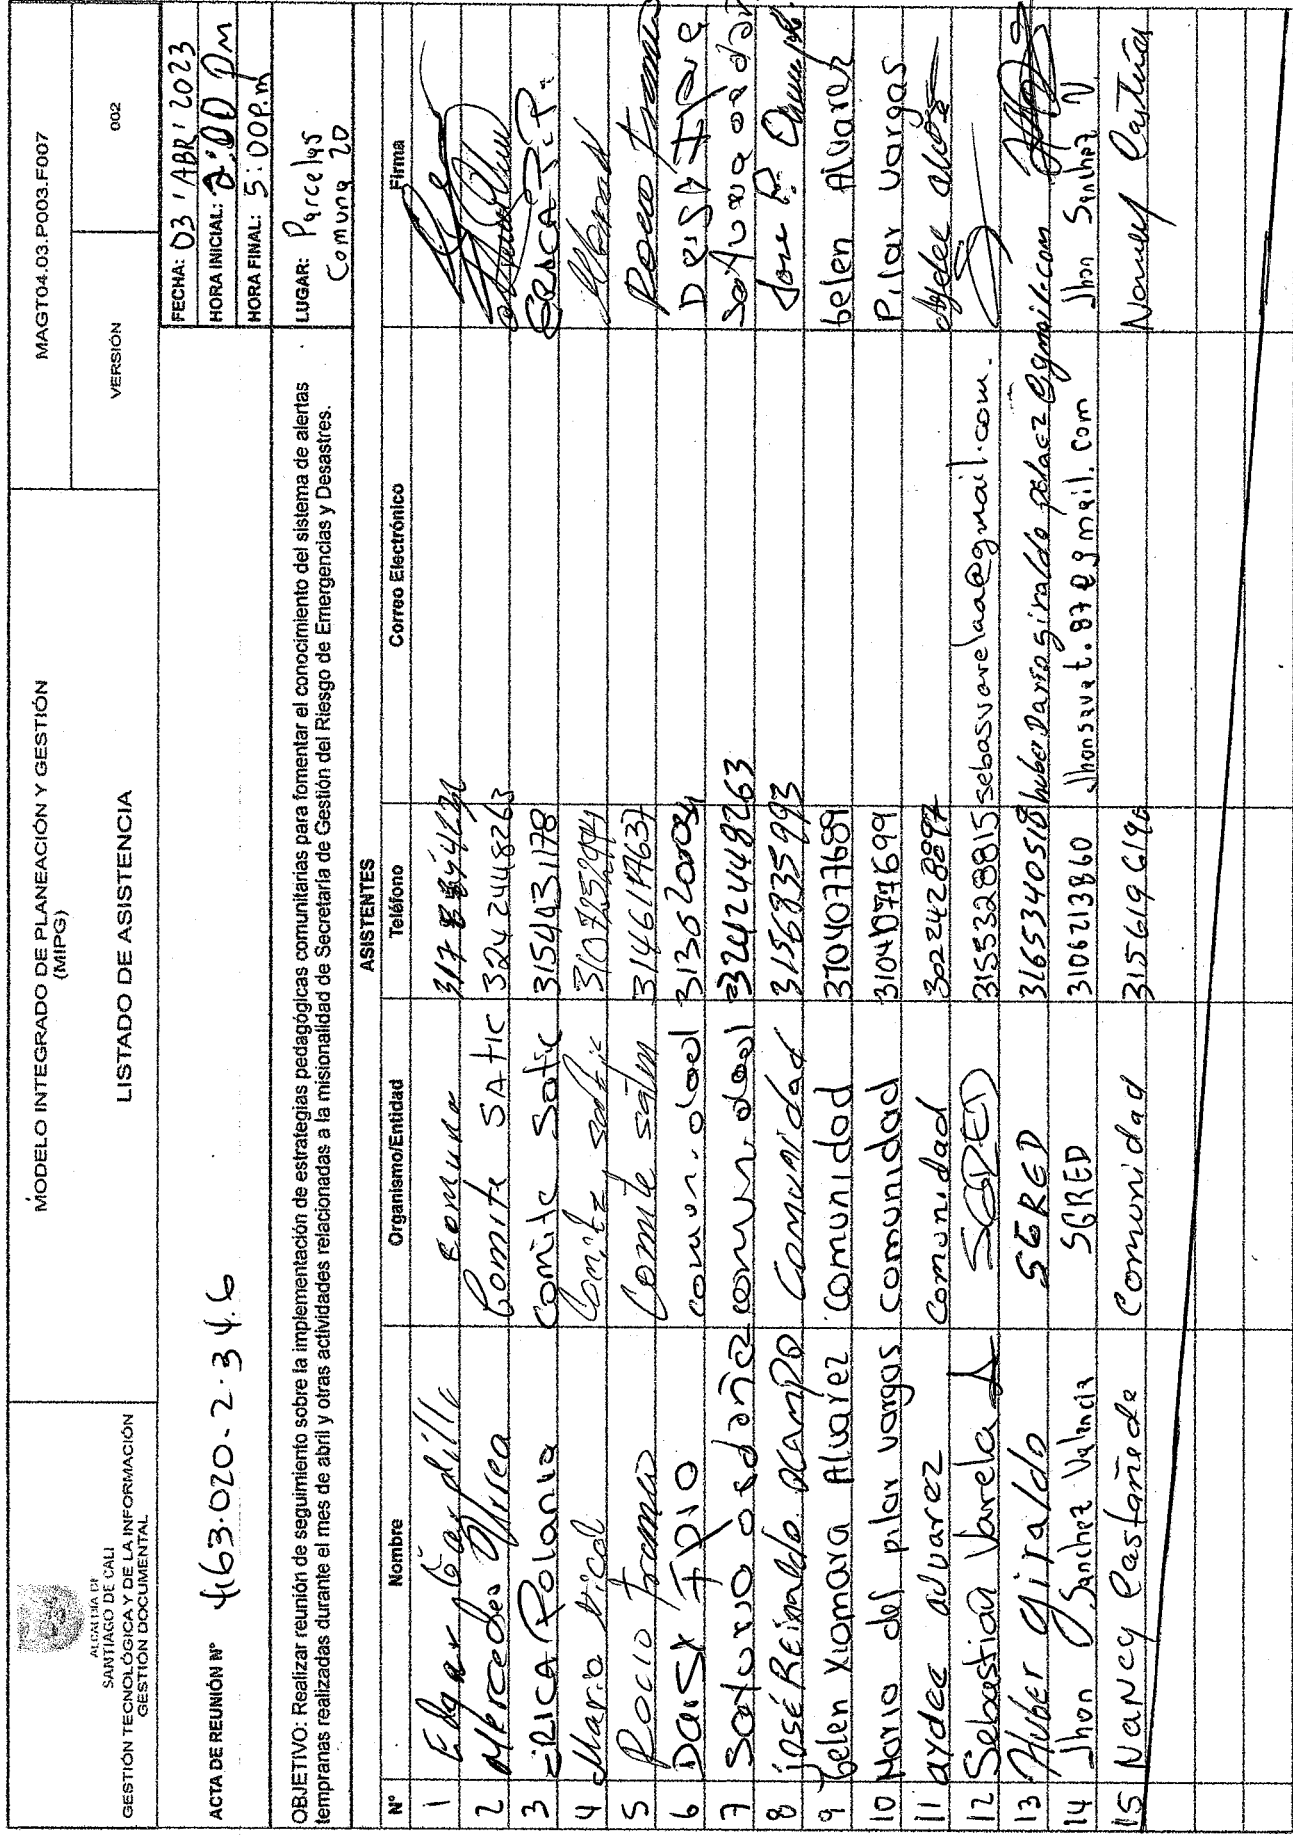 ALCALDÍA DE
SANTIAGO DE CALI
GESTIÓN TECNOLÓGICA Y DE LA INFORMACIÓN
GESTIÓN DOCUMENTAL
MODELO INTEGRADO DE PLANEACIÓN Y GESTIÓN
(MIPG)
LISTADO DE ASISTENCIA
MAGT04.03.P003.F007
VERSIÓN 002
ACTA DE REUNIÓN N° 4163.020.2.34.6
FECHA: 03 / ABRI 2023
HORA INICIAL: 2:00 PM
HORA FINAL: 5:00 P.m
OBJETIVO: Realizar reunión de seguimiento sobre la implementación de estrategias pedagógicas comunitarias para fomentar el conocimiento del sistema de alertas
tempranas realizadas durante el mes de abril y otras actividades relacionadas a la misionalidad de Secretaría de Gestión del Riesgo de Emergencias y Desastres.
LUGAR: Parcelas
Comuna 20
ASISTENTES
N° Nombre Organismo/Entidad Teléfono Correo Electrónico Firma
1 Edgar
2 Mercedes Comite SATIC 3242448263
3 ERICA Polania Comite Satic 3154431178 ERICA P.P.
4 Maria
5 Rocio Comite
6 Daisy comunidad
7 Saturia comunidad 3242448263
8 José Reinaldo OCAMPO Comunidad 3156835993 Jose R.
9 belen Xiomara Alvarez Comunidad 3104077689 belen Alvarez
10 Maria del pilar vargas comunidad 3104077699 Pilar vargas
11 aydee alvarez Comunidad 3022428897 aydee
12 Sebastian Varela A SGRED 3155328815 sebasvarelaa@gmail.com.
13 Huber Giraldo SGRED 3165340518 huberdariogiraldopelaez@gmail.com
14 Jhon J Sanchez Valencia SGRED 3106213860 Jhonsavat.87@gmail.com Jhon Sanchez V
15 Nancy Castañeda Comunidad 3156196190 Nancy